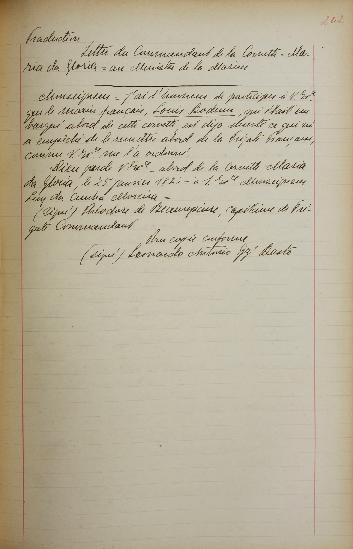 202
Traduction
Lettre du Commandant de la Corvette - Ma-
ria da Gloria - au Ministre de la Marine
Monseigneur - J'ai l'honneur de participer à V. Exce
que le marin français, Louis, qui était em-
barqué abord de cette corvette, est déjà ce qui m'a
empêché de le remettre abord de la frégate française,
comme V. Exce me l'a ordonné.
Dieu garde V. Exce - abord de la Corvette Maria
da Gloria, le 25 janvier - à S. Exce Monseigneur
da Cunha Moreira -
(Signé) Théodore de Beaurepaire, capitaine de Fré-
gate Commandant
Pour copie conforme
(Signé) Leonardo Antonio